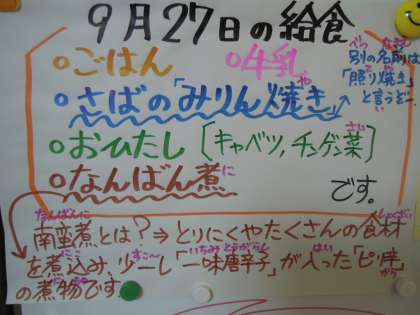 9月27日の給食
○ごはん ○牛乳
○さばの「みりん焼き」
別の名前は
「照り焼き」
と言うぞ!
○おひたし〔キャベツ,チンゲン菜〕
○なんばん煮
です。
南蛮煮とは?⇒とりにくやたくさんの食材
を煮込み、少ーし「一味唐辛子」が入った「ピリ辛」
の煮物です。